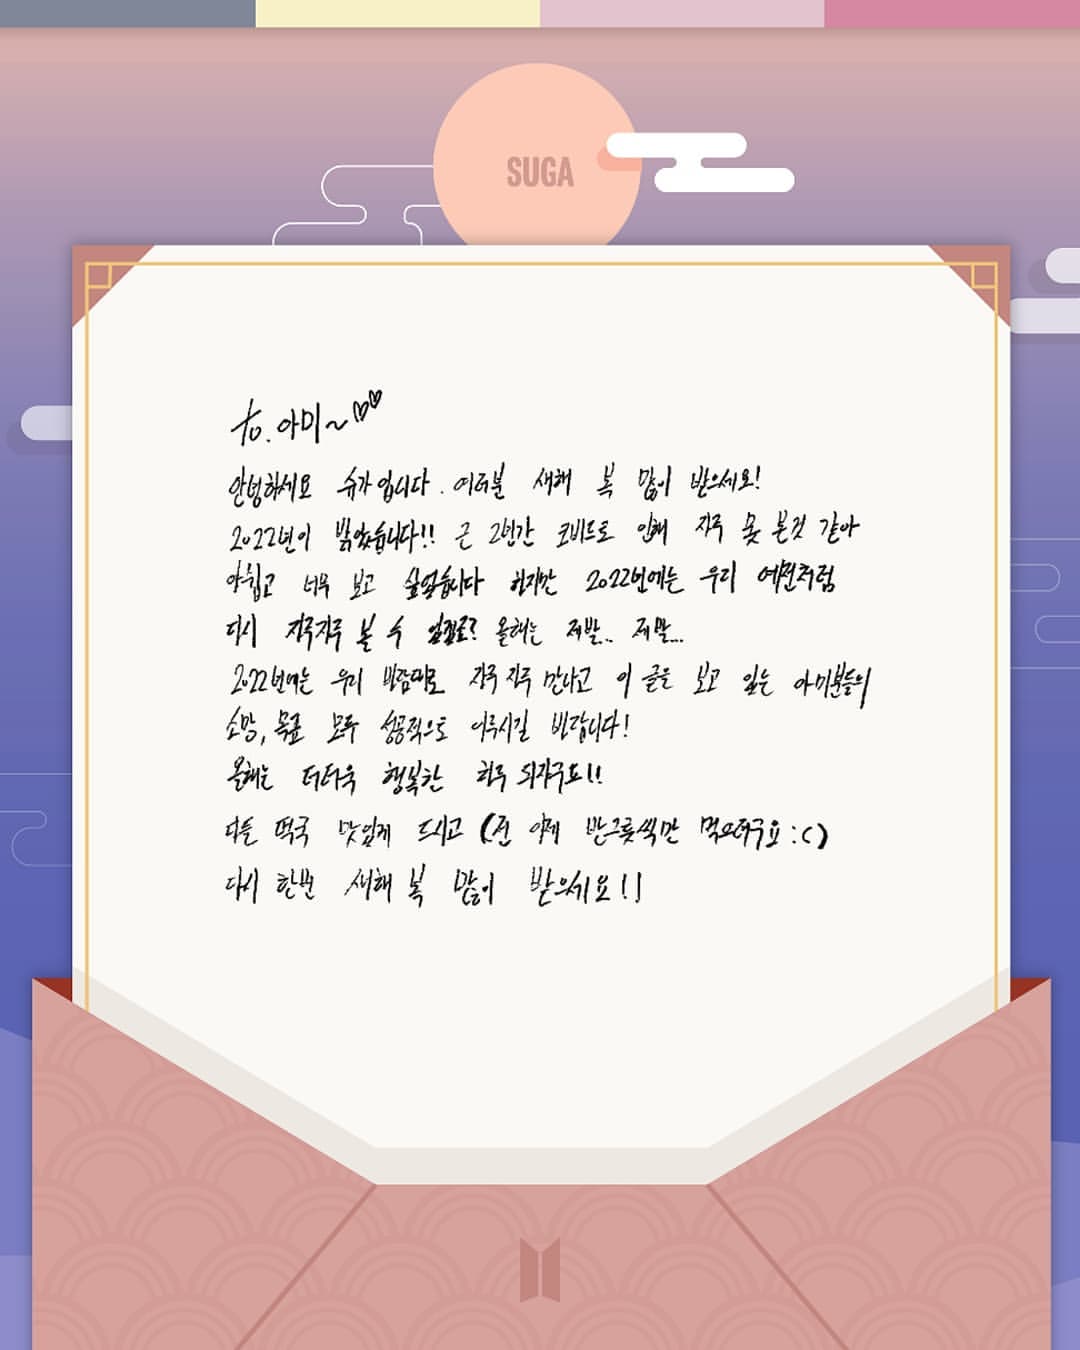 SUGA
to. 아미~♡♡
안녕하세요 슈가입니다. 여러분 새해 복 많이 받으세요!
2022년이 밝았습니다!! 근 2년간 코비드로 인해 자주 못 본것 같아
아쉽고 너무 보고 싶었습니다 하지만 2022년에는 우리 예전처럼
다시 자주자주 볼 수 있겠죠? 올해는 제발.. 제발...
2022년에는 우리 바람대로 자주 자주 만나고 이 글을 보고 있는 아미분들의
소망, 목표 모두 성공적으로 이루시길 바랍니다!
올해는 더더욱 행복한 하루 되자구요!!
다들 떡국 맛있게 드시고 (전 이제 반그릇씩만 먹으려구요 :()
다시 한번 새해 복 많이 받으세요!!